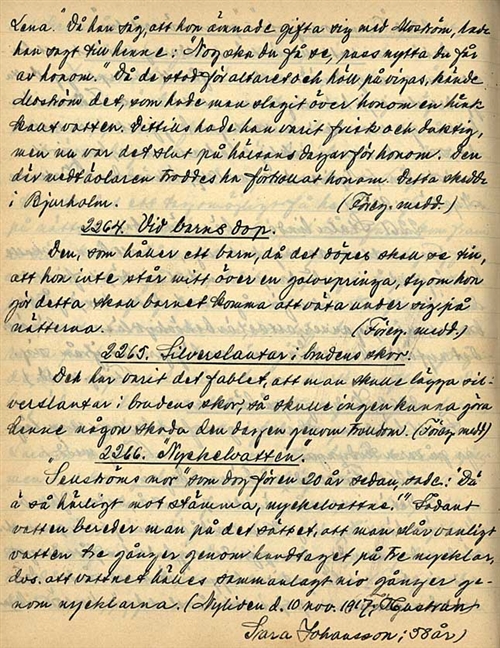 Lena." Då han såg, att hon ämnade gifta sig med Moström, hade
han sagt till henne: "Nog ska du få se, pass nytta du får
av honom." Då de stod för altaret och höll på vigas, kände
Moström det, som hade man slagit över honom en hink
kallt vatten. Dittills hade han varit frisk och duktig,
men nu var det slut på hälsans dagar för honom. Den
där medtävlaren troddes ha förtrollat honom. Detta skedde
i Bjurholm. (Föreg. medd.)
2264. Vid barns dop.
Den, som håller ett barn, då det döpes skall se till,
att hon inte står mitt över en golvspringa, ty om hon
gör detta skall barnet komma att väta under sig på
nätterna. (Föreg. medd.)
2265. Silverslantar i brudens skor.
Det har varit det fablet, att man skulle lägga sil-
verslantar i brudens skor, så skulle ingen kunna göra
henne någon skada den dagen genom trolldom. (Föreg. medd)
2266. "Nyckelvatten."
"Senströms mor" som dog för en 20 år sedan, sade: "Dä
ä så härligt mot stämma, nyckelvattne." Sådant
vatten bereder man på det sättet, att man slår vanligt
vatten tre gånger genom handtaget på tre nycklar,
dvs. att vattnet hälles sammanlagt nio gånger ge-
nom nycklarna. (Nyliden d. 10 nov. 1917,
Sara Johansson; 58 år)